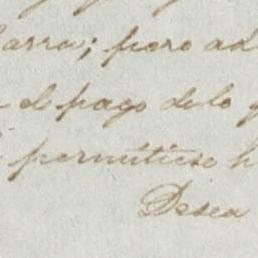 arra; pero ad
el pago de lo
permitiese h
Desea